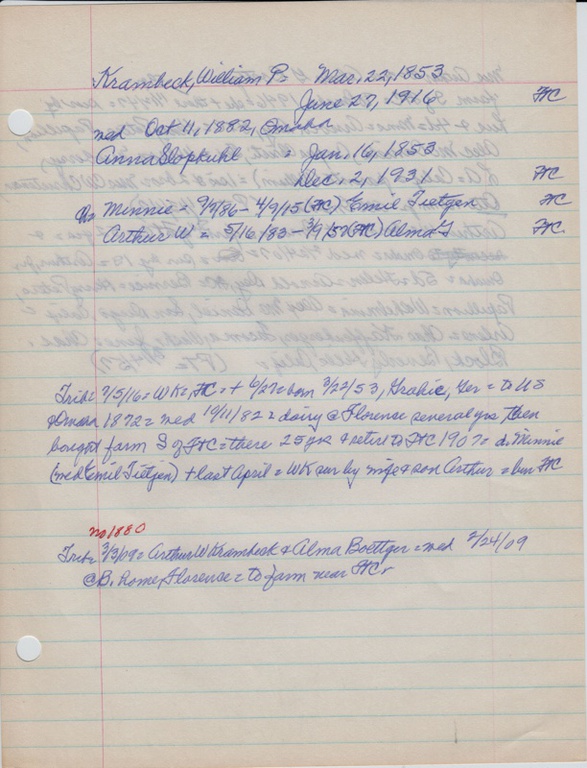 Krambeck, William P = Mar, 22, 1853
June 27, 1916 FC
med Oct 11, 1882, Omaha
Anna Slopkuhl = Jan. 16, 1853
Dec. 2, 1931 FC
Ch = Minnie = 9/9/86 - 4/9/15 (FC) Emil Tietgen FC
Arthur W = 5/16/83 - 3/9/57 (FC) Alma FC
Trib = 7/5/16 = WK = FC = + 6/27 = born 3/22/53, Ger = to US
& Omaha 1872 = med 10/11/82 = dairy @ Florence several yrs, then
bought farm S of FC = there 25 yrs & retire to FC 1907 = d. Minnie
(med Emil Tietjen) + last April = WK sur by wife & son Arthur = bur FC
no 1880
Trib = 3/3/09 = Arthur W Krambeck & Alma Boettger = med 2/24/09
@ B. home, Florence = to farm near FC